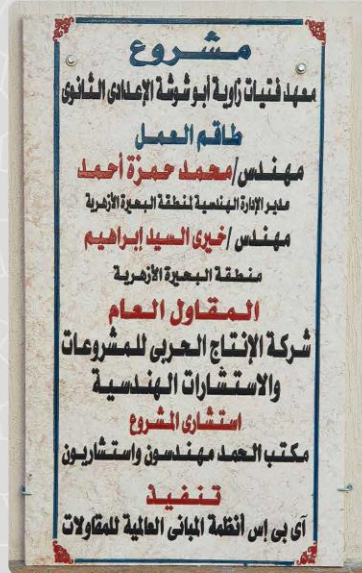 مشروع
معهد فتيات زاوية أبو شوشة الإعدادى الثانوى
طاقم العمل
مهندس/محمد حمزة أحمد
مدير الإدارة الهندسية لمنطقة البحيرة الأزهرية
مهندس /خيرى السيد إبراهيم
منطقة البحيرة الأزهرية
المقاول العام
شركة الإنتاج الحربى للمشروعات
والاستشارات الهندسية
استشارى المشروع
مكتب الحمد مهندسون واستشاريون
تنفيذ
آى بى إس أنظمة المبانى العالمية للمقاولات